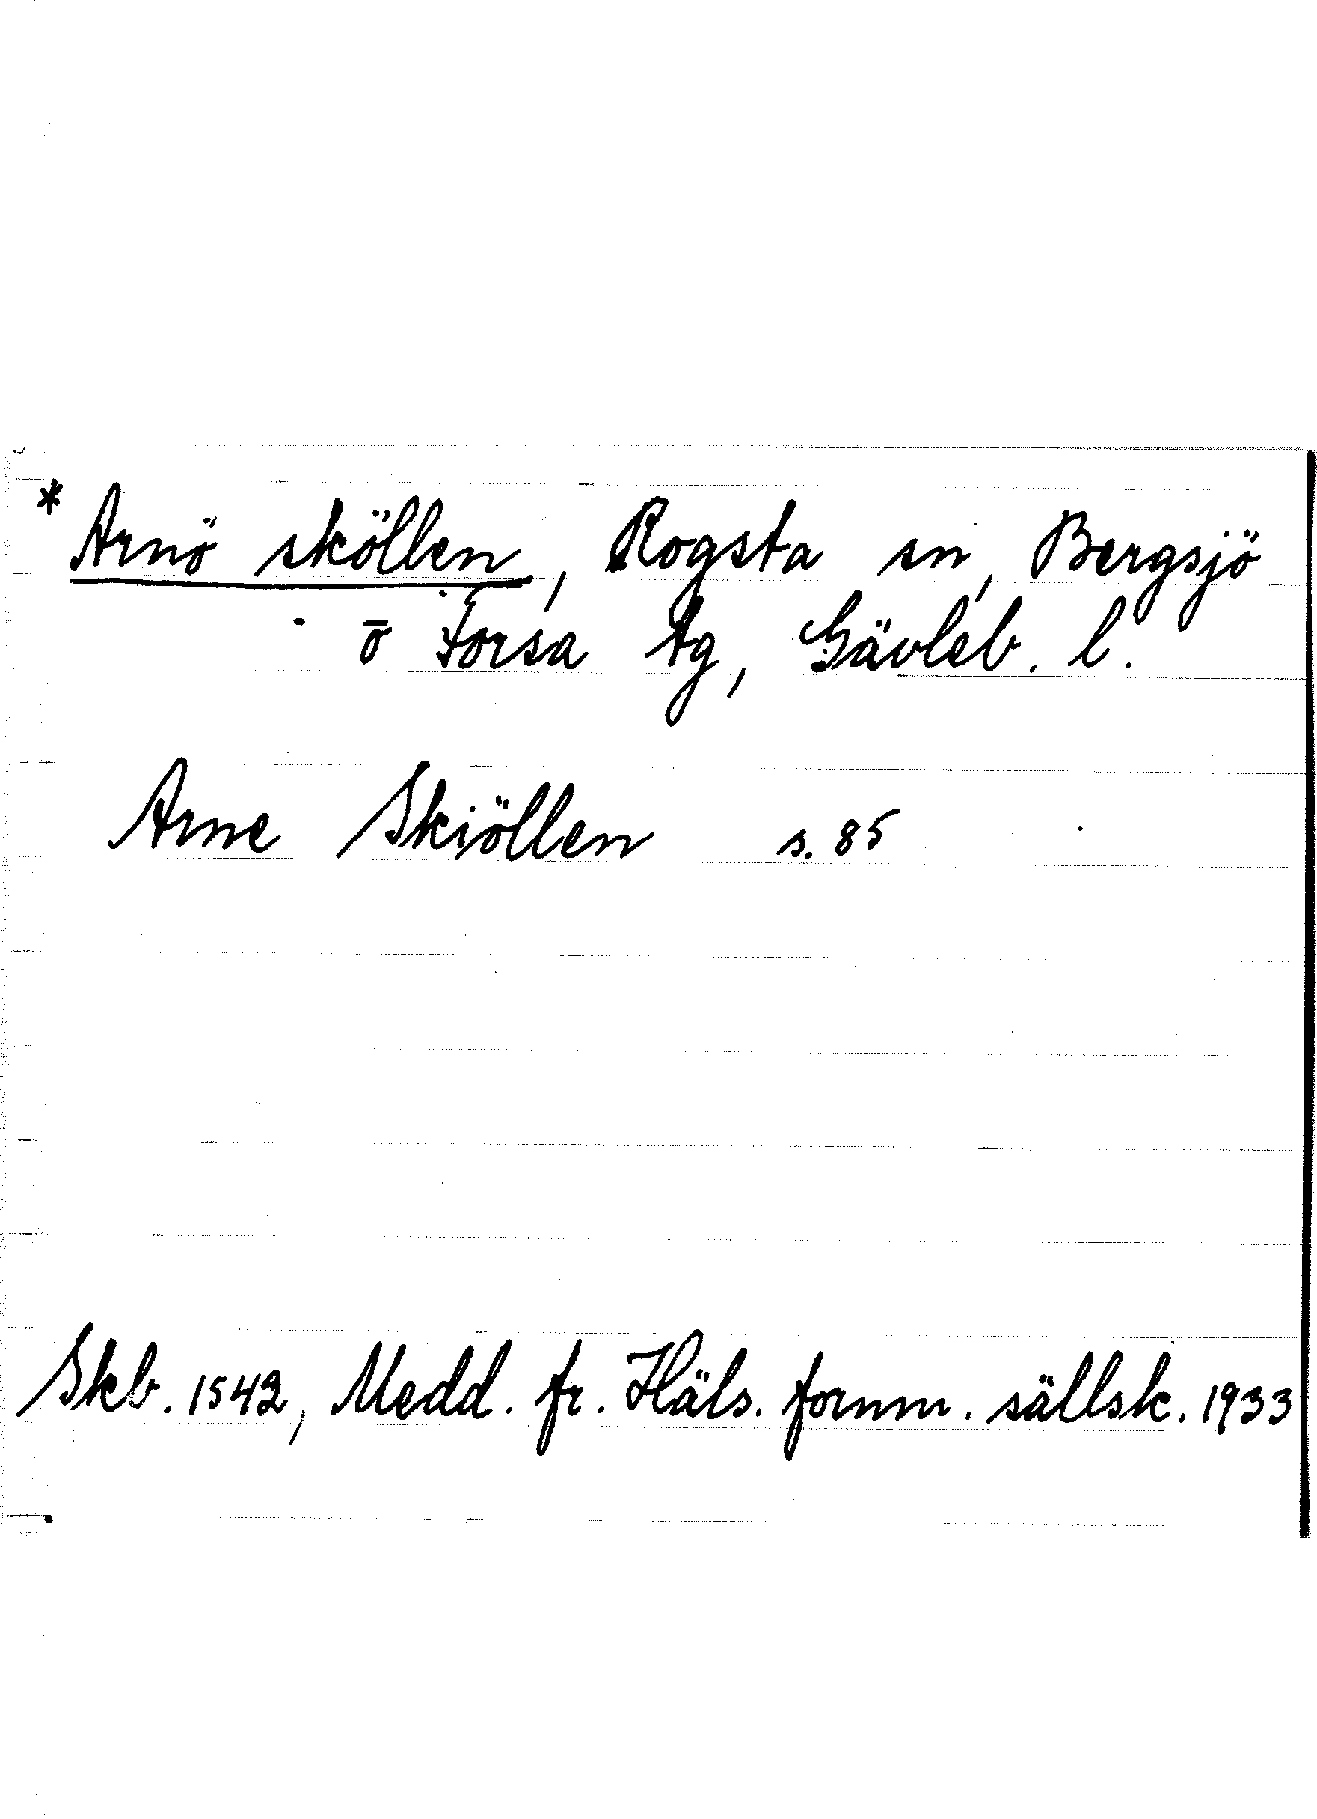 * Arnö sköllen, Rogsta sn, Bergsjö
o Forsa tg, Gävleb. l.
Arne Skiöllen s. 85
Skb. 1542, Medd. fr. Häls. fornm. sällsk. 1933